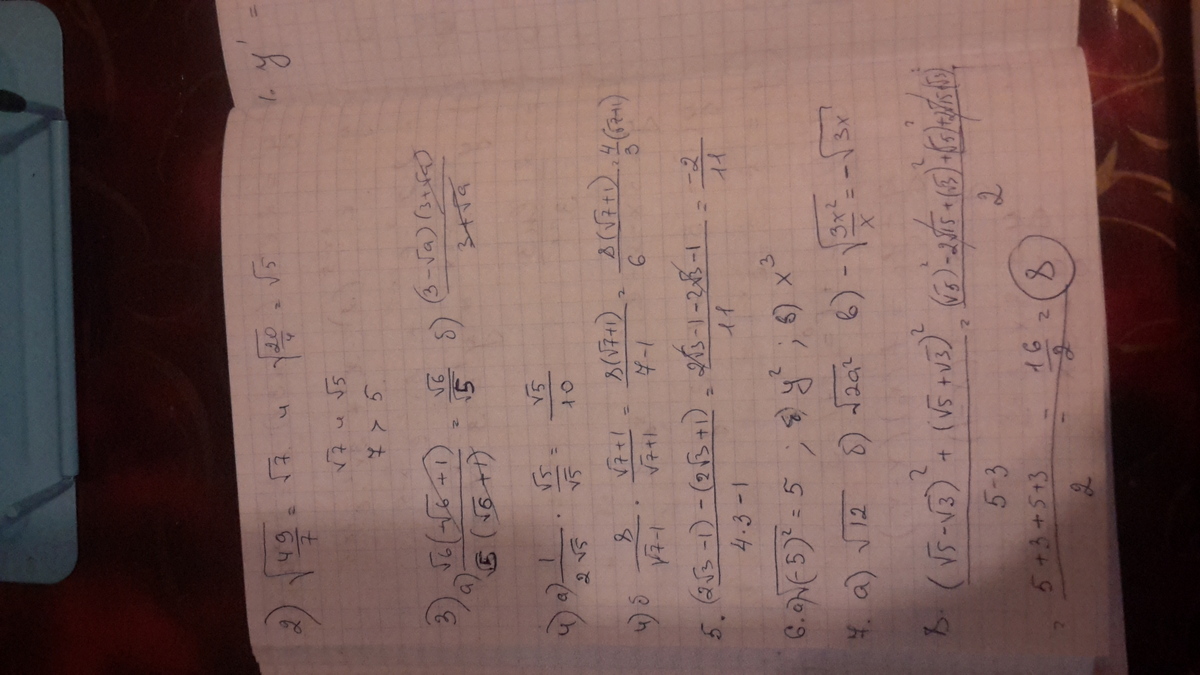 2) √(49/7) = √7 и √(20/4) = √5
√7 и √5
7 > 5
3) а) √6(√6+1) / √5(√6+1) = √6/√5 б) (3-√a)(3+√a) / 3+√a
4) а) 1/2√5 · √5/√5 = √5/10
4) б 8/√7-1 · √7+1/√7+1 = 8(√7+1)/7-1 = 8(√7+1)/6 = 4/3 (√7+1)
5. (2√3-1)-(2√3+1) / 4·3-1 = 2√3-1-2√3-1 / 11 = -2/11
6. а) √(-5)² = 5 ; б) y² ; в) x³
7. а) √12 б) √2a² в) -√(3x²/x) = -√3x
8. (√5-√3)² + (√5+√3)² / 5-3 = (√5)²-2√15+(√3)²+(√5)²+2√15+(√3)² / 2
= 5+3+5+3 / 2 = 16/2 = 8
1. y' =